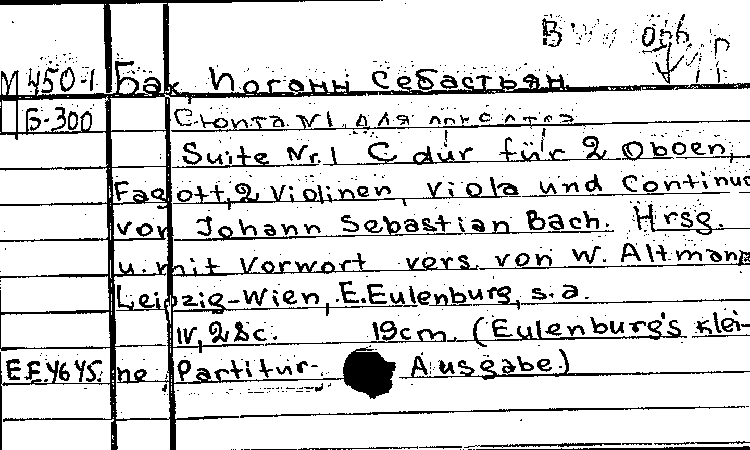 BWV 066
М 450-1 Бах, Иоганн Себастьян.
Б-300 Сюита N1 для оркестра
Suite Nr. 1 C dur für 2 Oboen,
Fagott, 2 Violinen, Viola und Continuo
von Johann Sebastian Bach. Hrsg.
u. mit Vorwort vers. von W. Altmann
Leipzig-Wien, E. Eulenburg, s. a.
IV, 28c. 19cm. (Eulenburg's klei-
E.E.4645. ne Partitur- Ausgabe.)